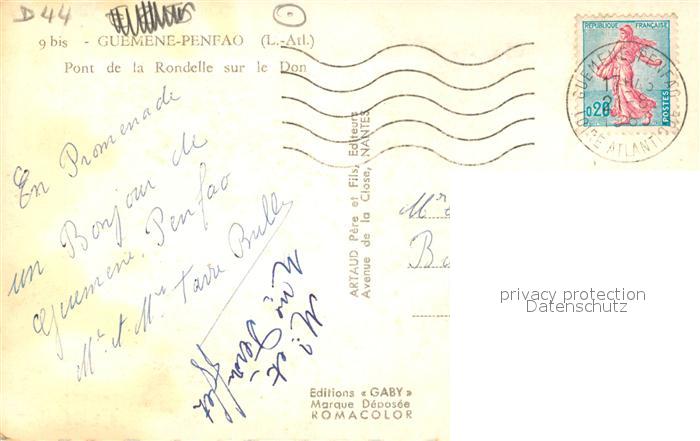 D44
9 bis - GUÉMÉNÉ-PENFAO (L.-Atl.)
Pont de la Rondelle sur le Don
En Promenade
un Bonjour de
Guemene. Penfao
Mr et Mme
Mr et
ARTAUD Père et Fils, Editeurs
Avenue de la Close, NANTES
Editions « GABY »
Marque Déposée
ROMACOLOR
REPUBLIQUE FRANÇAISE
0,20
POSTES
GUEMENE-PENFAO
LOIRE ATLANTIQUE
Mr
privacy protection
Datenschutz